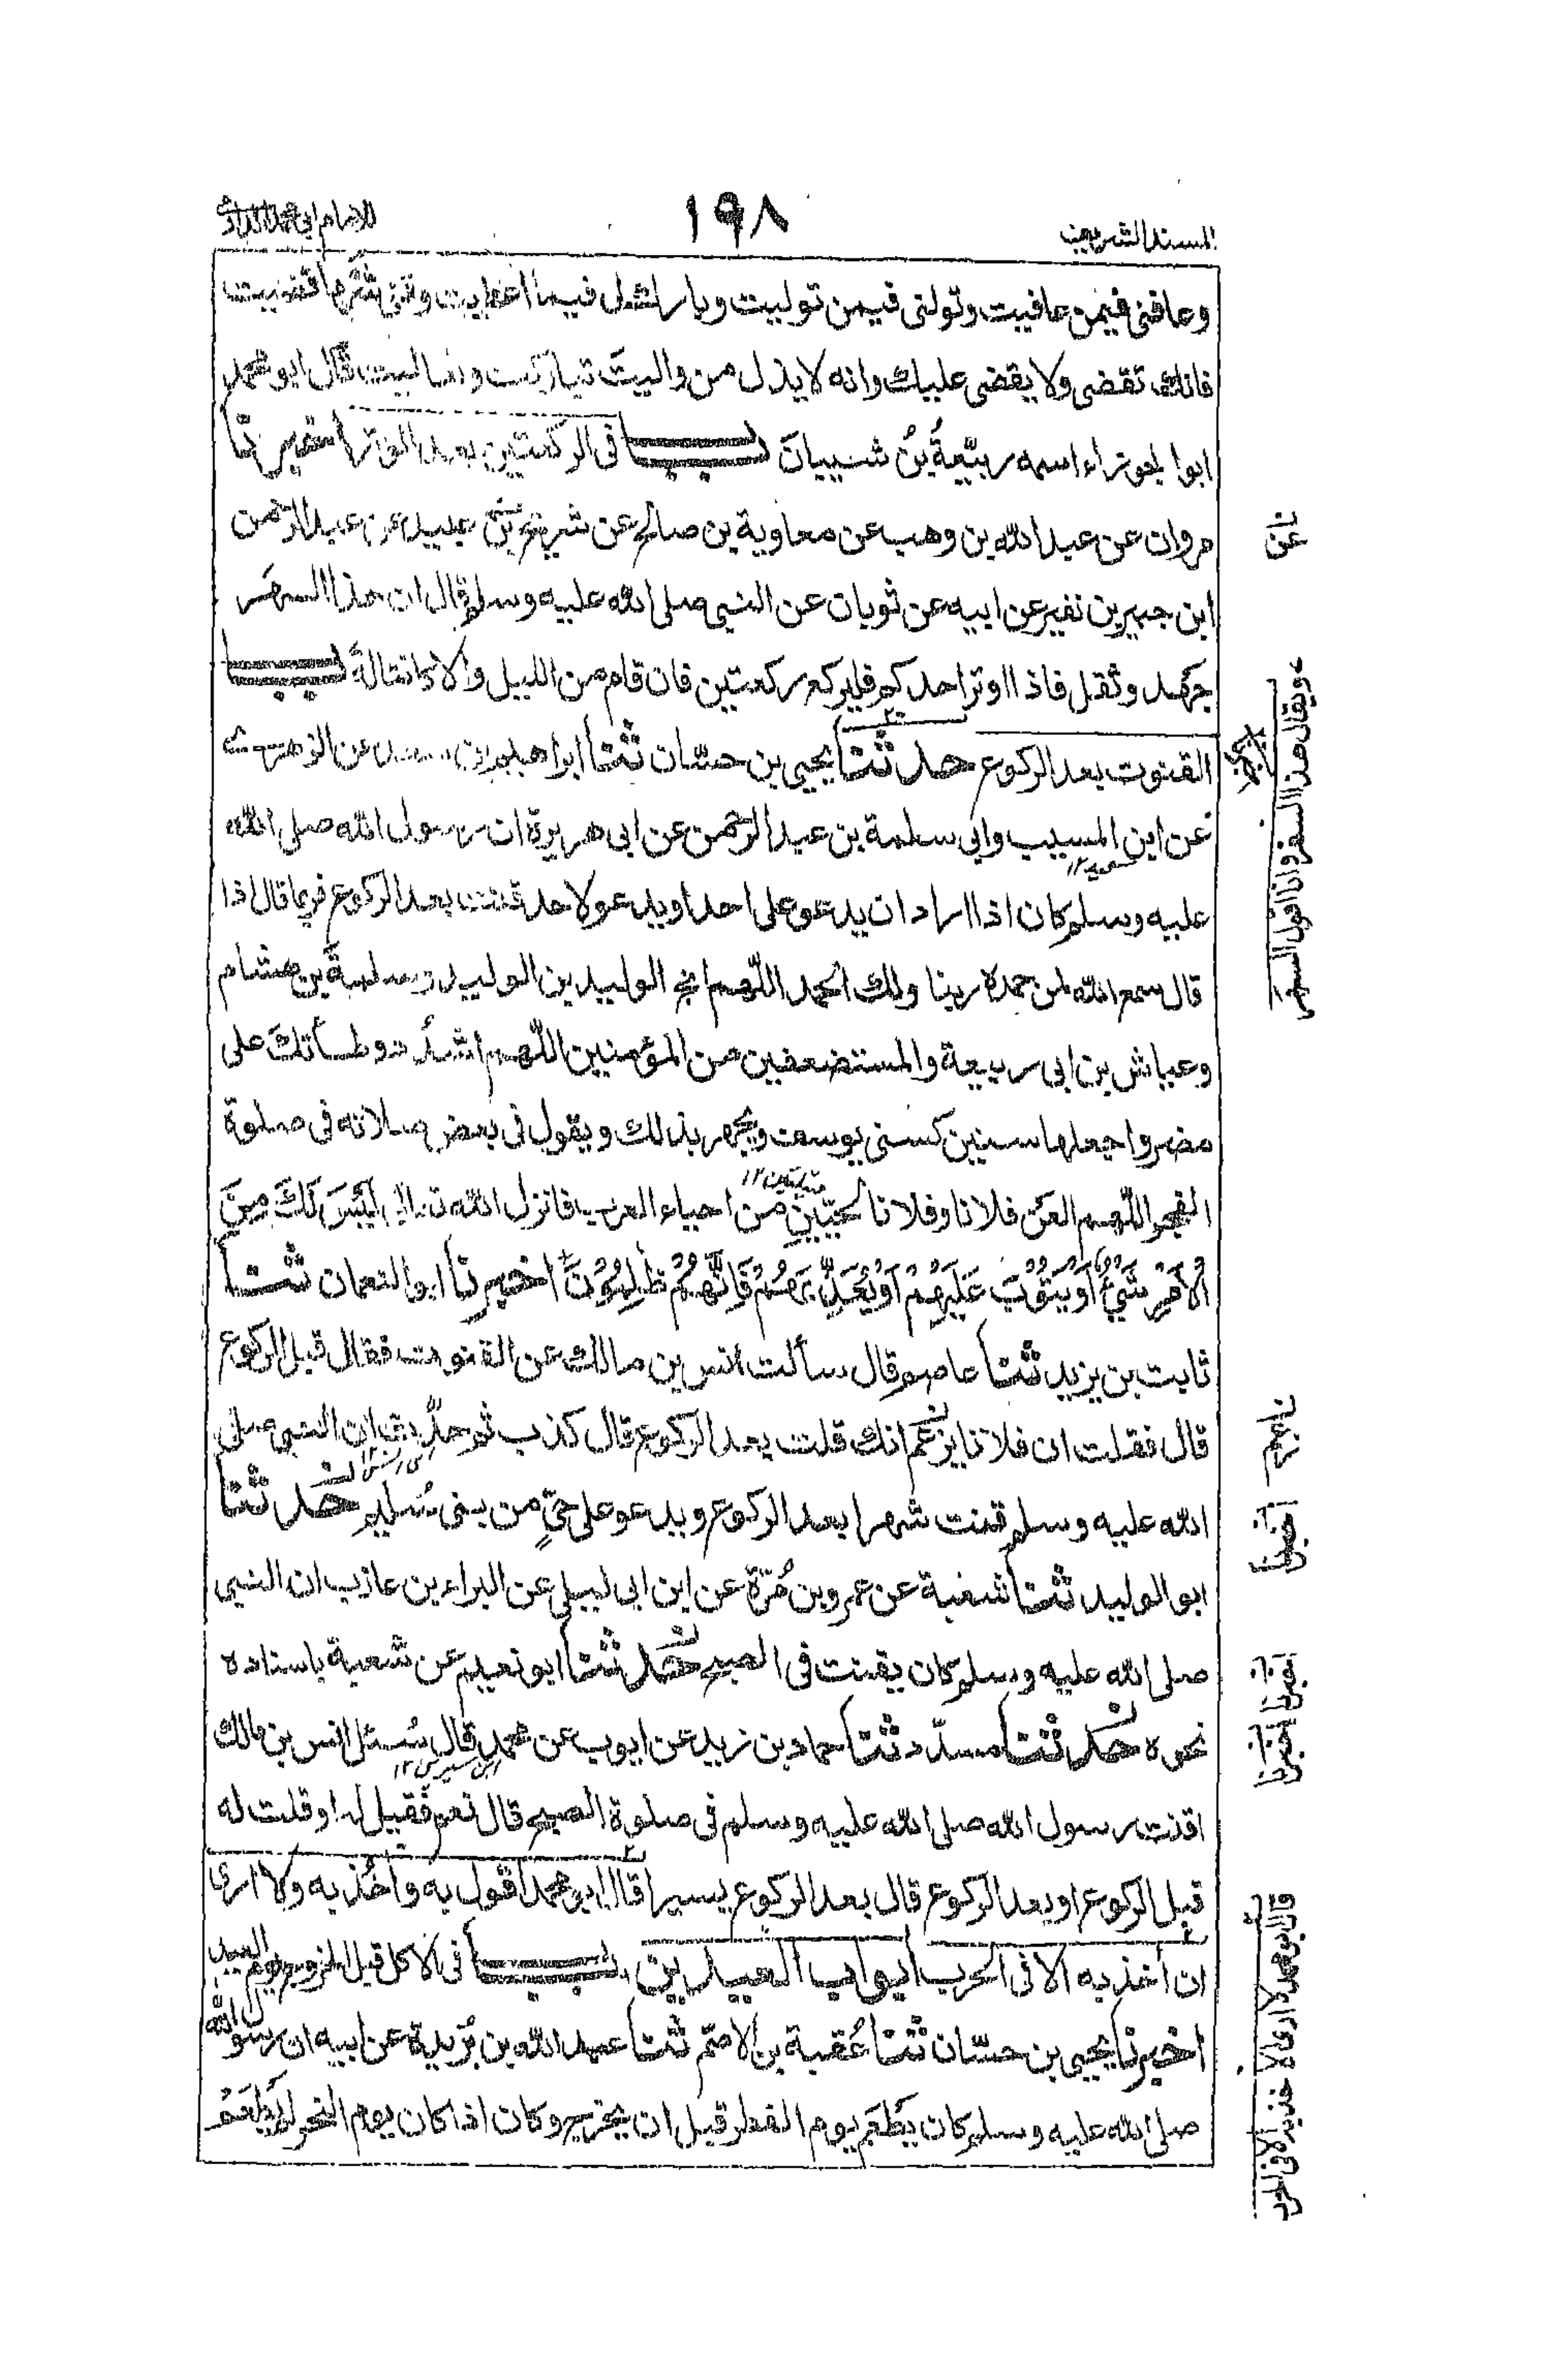 المسند الشريف
١٩٨
للامام ابي محمد الدارمي
وعافنى فيمن عافيت وتولنى فيمن توليت وبارك لى فيما اعطيت وقنى شر ما قضيت
فانك تقضى ولا يقضى عليك وانه لا يذل من واليت تباركت وتعاليت قال ابو محمد
ابوا لحوراء اسمه ربيعةُ بنُ شيبانَ باب فى الركعتين بعد الوتر اخبرنا
مروان عن عبد الله بن وهب عن معاوية بن صالح عن شريح بن عبيد عن عبد الرحمن
ابن جبير بن نفير عن ابيه عن ثوبان عن النبى صلى الله عليه وسلم قال ان هذا السهَر
جَهد وثقل فاذا اوتر احدكم فليركع ركعتين فان قام من الليل والا كانتا له باب
القنوت بعد الركوع حدثنا يحيى بن حسّان ثنا ابراهيم بن سعد عن الزهرى
عن ابن المسيب وابى سلمة بن عبد الرحمن عن ابى هريرة ان رسول الله صلى الله
سعيد ١٢
عليه وسلم كان اذا اراد ان يدعو على احد او يدعو لاحد قنت بعد الركوع فربما قال اذا
قال سمع الله لمن حمده ربنا ولك الحمد اللّهم انج الوليد بن الوليد وسلمةَ بن هشام
وعياش بن ابى ربيعة والمستضعفين من المؤمنين اللّهم اشدُد وطأتكَ على
مضر واجعلها سنين كسنى يوسف ويجهر بذلك ويقول فى بعض صلاته فى صلوة
الفجر اللّهم العن فلانا وفلانا لحيّينِ من احياء العرب فانزل الله تعالى لَيْسَ لَكَ مِنَ
الْاَمْرِ شَيْءٌ اَوْ يَتُوْبَ عَلَيْهِمْ اَوْ يُعَذِّبَهُمْ فَاِنَّهُمْ ظٰلِمُوْنَ اخبرنا ابو النعمان ثنا
ثابت بن يزيد ثنا عاصم قال سألت انس بن مالك عن القنوت فقال قبل الركوع
قال فقلت ان فلانا يزعم انك قلت بعد الركوع قال كذب ثم حدّث ان النبى صلى
الله عليه وسلم قنت شهرا بعد الركوع ويدعو على حيٍّ من بنى سُليم حدثنا
ابو الوليد ثنا شعبة عن عمرو بن مُرّة عن ابن ابى ليلى عن البراء بن عازب ان النبى
صلى الله عليه وسلم كان يقنت فى الصبح حدثنا ابو نعيم عن شعبة باسناده
نحوه حدثنا مسدّد ثنا حماد بن زيد عن ايوب عن محمد قال سُئل انس بن مالك
ابن سيرين ١٢
اقنت رسول الله صلى الله عليه وسلم فى صلوة الصبح قال نعم فقيل له او قلت له
قبل الركوع او بعد الركوع قال بعد الركوع يسيرا قال ابو محمد اقول به واٰخُذ به ولا ارى
ان اٰخذ به الا فى الحرب ابواب العيدين باب فى الاكل قبل الخروج يوم العيد
اخبرنا يحيى بن حسّان ثنا عُقبة بن الاصمّ ثنا عبد الله بن بُريدة عن ابيه ان رسول الله
صلى الله عليه وسلم كان يَطْعَم يوم الفطر قبل ان يخرج وكان اذا كان يوم النحر لم يَطْعَمْ
نا عن
ويقال هذا السفر وانا اقول السهر
اخبرنا
اخبرنا اخبرنا
قال ابو محمد لا ارى الاخذ به الا فى الحرب